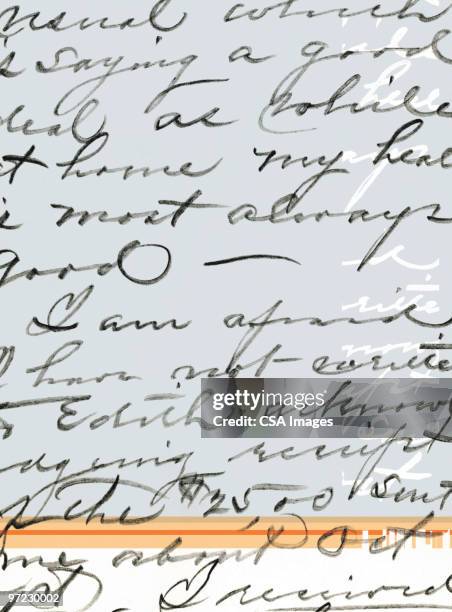 usual which
is saying a good
deal as while
at home my heal
is most always
good —
I am afraid
I have not write
to Edith acknow
edging receipt
of the $25.00 sent
me about Oct
1st I received
gettyimages®
Credit: CSA Images
97230002